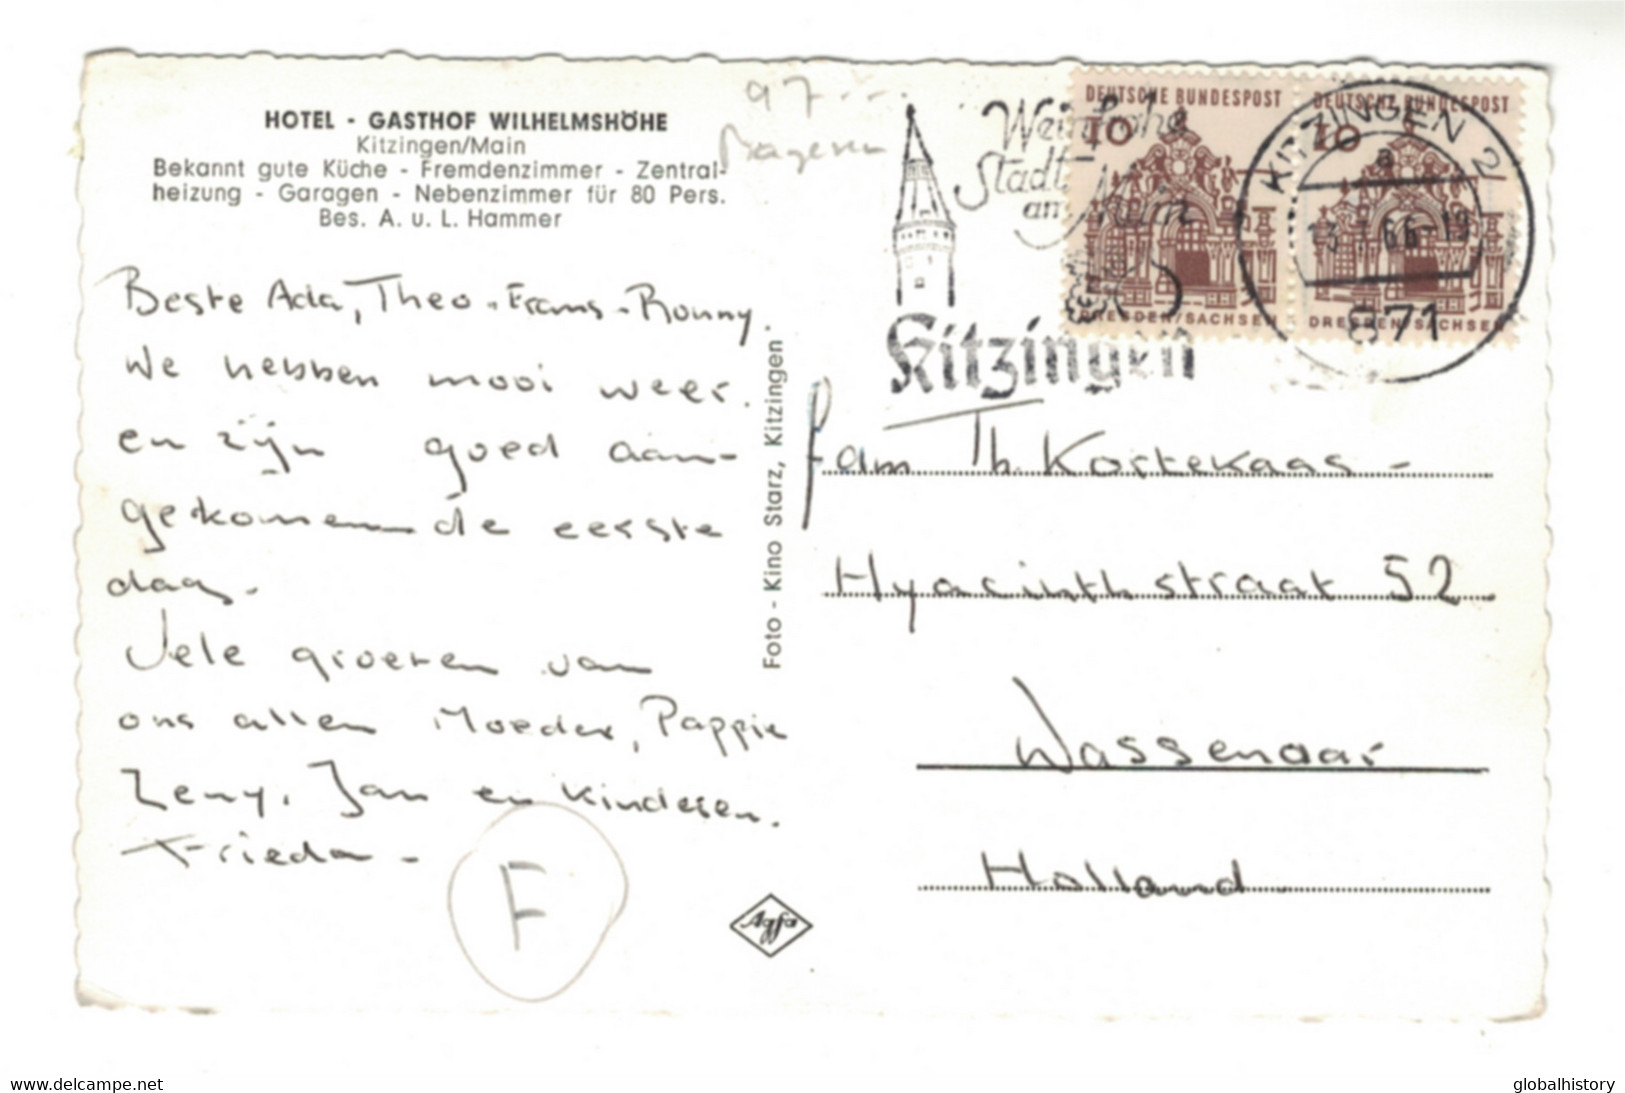 HOTEL - GASTHOF WILHELMSHÖHE
Kitzingen/Main
Bekannt gute Küche - Fremdenzimmer - Zentral-
heizung - Garagen - Nebenzimmer für 80 Pers.
Bes. A. u. L. Hammer
97
Beste Ada, Theo - Frans - Ronny.
We hebben mooi weer.
en zijn goed aan-
gekomen de eerste
dag.
Vele groeten van
ons allen Moeder, Pappie
Zeny, Jan en kinderen.
Frieda -
F
Foto - Kino Starz, Kitzingen
Agfa
Weinfrohe
Stadt
am Main
Kitzingen
DEUTSCHE BUNDESPOST
10
DRESDEN/SACHSEN
DEUTSCHE BUNDESPOST
10
DRESDEN/SACHSEN
KITZINGEN 2
a
66-19
871
Fam Th. Kortekaas -
Hyacinthstraat 52
Wassenaar
Holland
www.delcampe.net
globalhistory